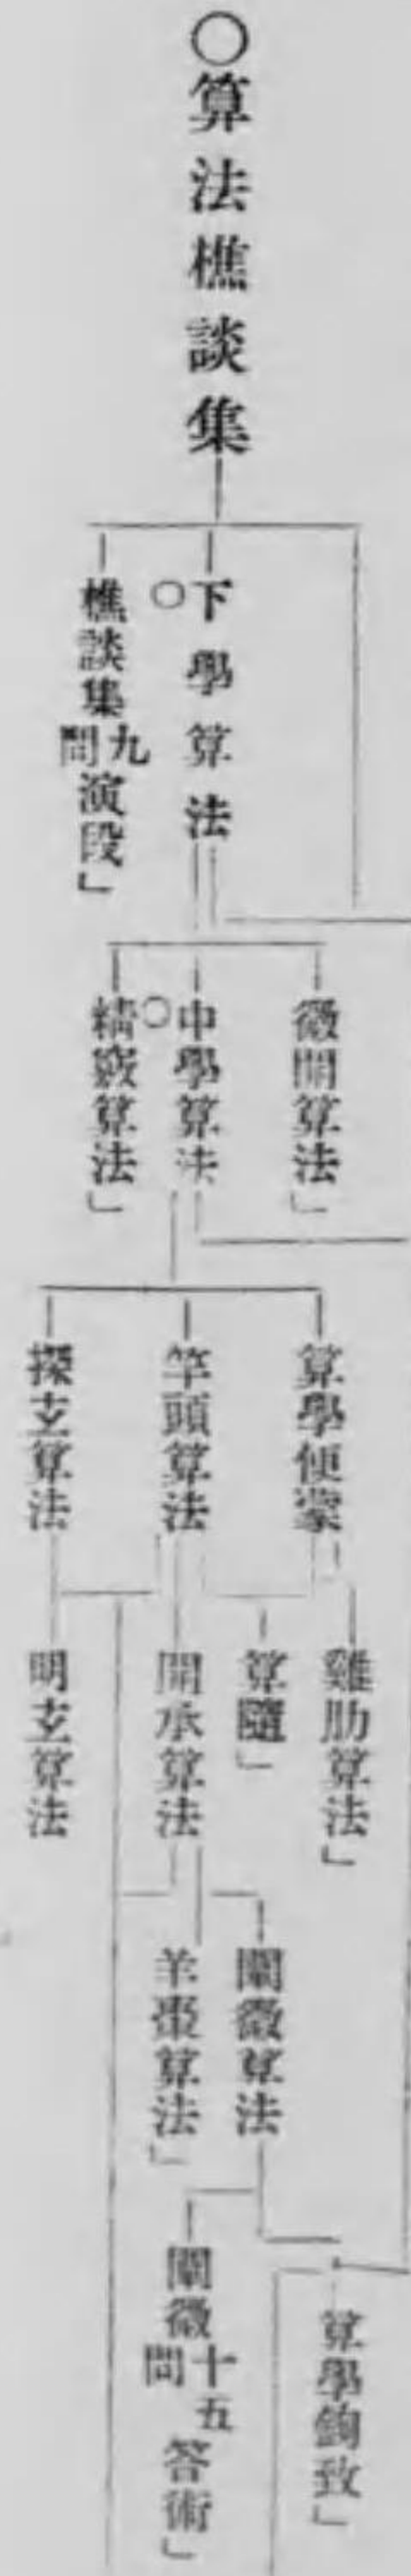 ○算法樵談集
下學算法
○
樵談集九問演段」
微開算法」
中學算法
○
精窽算法」
算學便蒙
竿頭算法
探玄算法
雞肋算法」
算隨」
開承算法
明玄算法
闡微算法
羊棗算法」
算學鉤致」
闡微十五問答術」